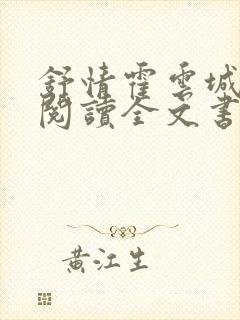 舒情霍雲城
閱讀全文書
黃江生